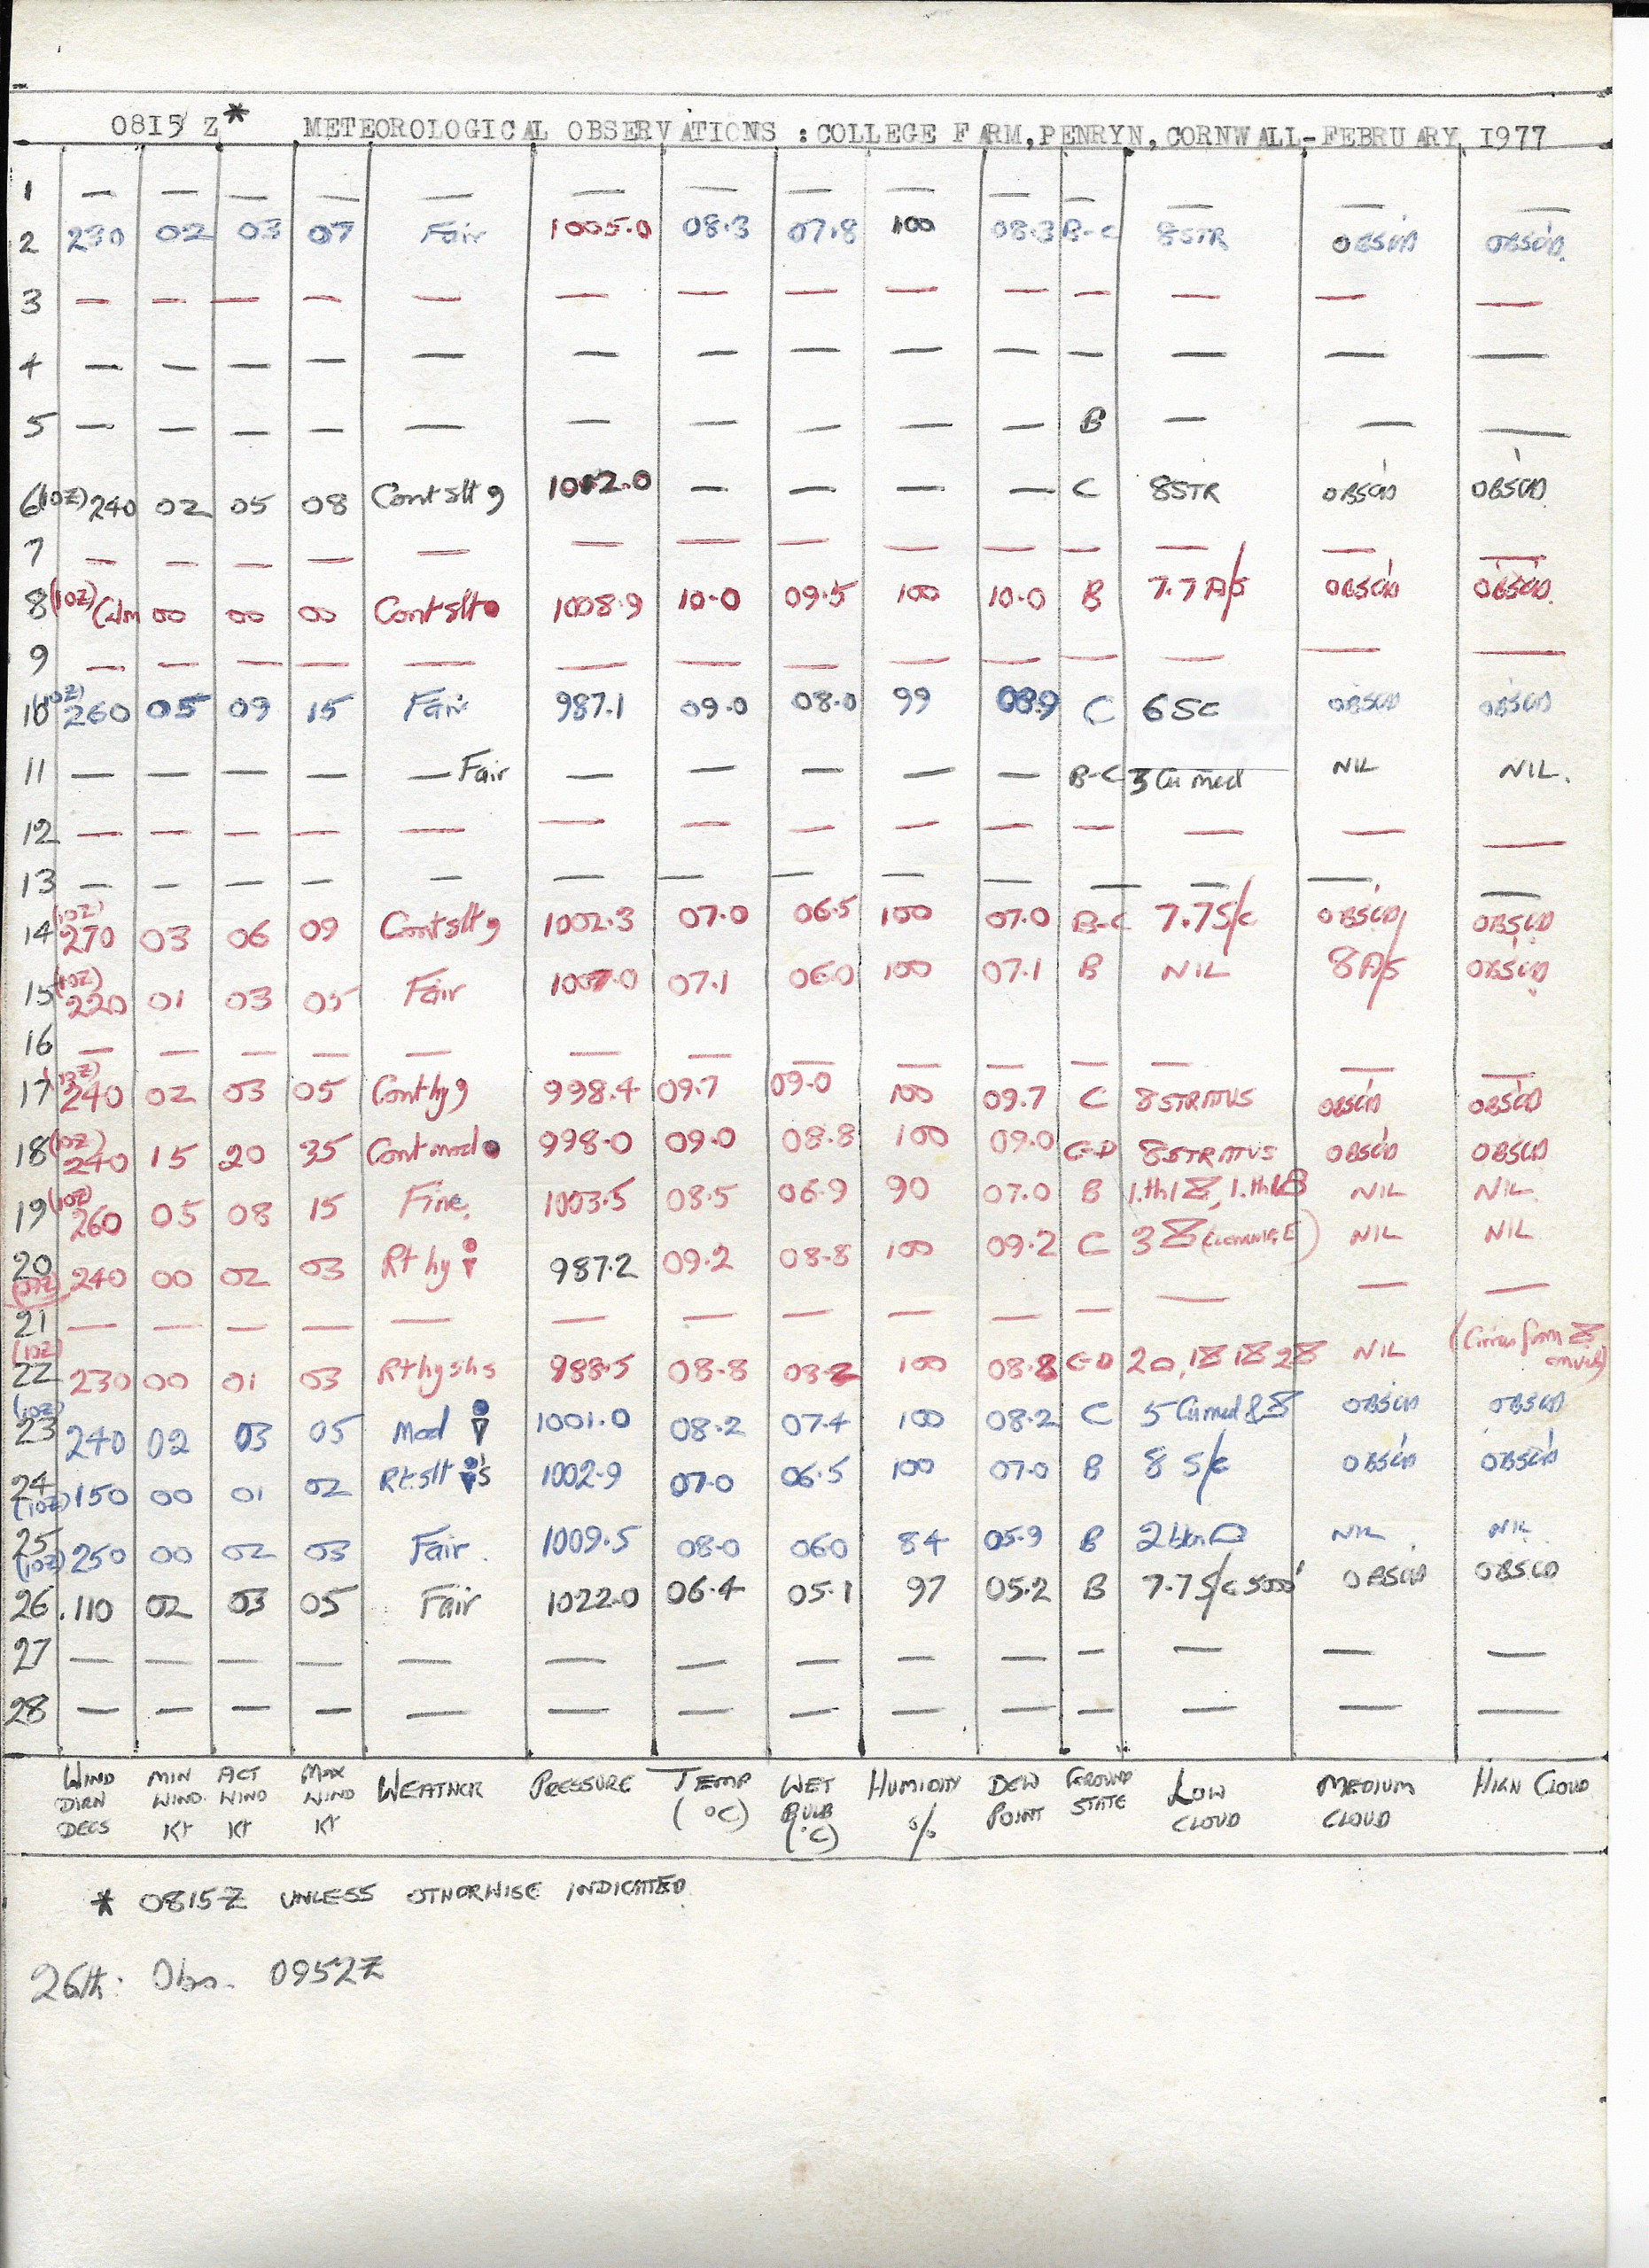 0815 Z* METEOROLOGICAL OBSERVATIONS : COLLEGE FARM, PENRYN, CORNWALL-FEBRUARY 1977
1 — — — — — — — — — — — — — —
2 230 02 03 07 Fair 1005.0 08.3 07.8 100 08.3 B-C 8STR OBSC'D OBSC'D.
3 — — — — — — — — — — — — — —
4 — — — — — — — — — — — — — —
5 — — — — — — — — — — B — — —
6 (10Z) 240 02 05 08 Cont slt 9 1002.0 — — — — C 8STR OBSC'D OBSC'D
7 — — — — — — — — — — — — — —
8 (10Z) Calm 00 00 00 Cont slt ● 1008.9 10.0 09.5 100 10.0 B 7.7 A/S OBSC'D OBSC'D.
9 — — — — — — — — — — — — — —
10 (10Z) 260 05 09 15 Fair 987.1 09.0 08.0 99 08.9 C 6 SC OBSC'D OBSC'D
11 — — — — — Fair — — — — — B-C 3 Cu med NIL NIL.
12 — — — — — — — — — — — — — —
13 — — — — — — — — — — — — — —
14 (10Z) 270 03 06 09 Cont slt 9 1002.3 07.0 06.5 100 07.0 B-C 7.7 S/c OBSC'D OBSC'D
15 (10Z) 220 01 03 05 Fair 1007.0 07.1 06.0 100 07.1 B NIL 8 A/S OBSC'D
16 — — — — — — — — — — — — — —
17 (10Z) 240 02 03 05 Cont hy 9 998.4 09.7 09.0 100 09.7 C 8 STRATUS OBSC'D OBSC'D
18 (10Z) 240 15 20 35 Cont mod ● 998.0 09.0 08.8 100 09.0 G-D 8 STRATUS OBSC'D OBSC'D
19 (10Z) 260 05 08 15 Fine. 1003.5 08.5 06.9 90 07.0 B NIL NIL.
20 240 00 02 03 Rt hy 987.2 09.2 08.8 100 09.2 C 3 NIL NIL
21 — — — — — — — — — — — — — —
22 (10Z) 230 00 01 03 Rt hy shs 988.5 08.8 08.2 100 08.8 G-D NIL (Cirrus from anvils)
23 (10Z) 240 02 03 05 Mod 1001.0 08.2 07.4 100 08.2 C 5 Cu med & OBSC'D OBSC'D
24 (10Z) 150 00 01 02 Rt. slt 's 1002.9 07.0 06.5 100 07.0 B 8 S/c OBSC'D OBSC'D
25 (10Z) 250 00 02 03 Fair. 1009.5 08.0 06.0 84 05.9 B 2 NIL NIL
26 110 02 03 05 Fair 1022.0 06.4 05.1 97 05.2 B 7.7 S/c 5000' OBSC'D OBSC'D
27 — — — — — — — — — — — — — —
28 — — — — — — — — — — — — — —
WIND DIRN DEGS MIN WIND. Kt ACT WIND Kt MAX WIND Kt WEATHER PRESSURE TEMP (°C) WET BULB (°C) HUMIDITY % DEW POINT GROUND STATE LOW CLOUD MEDIUM CLOUD HIGH CLOUD
* 0815Z UNLESS OTHERWISE INDICATED.
26th: Obs. 0952Z